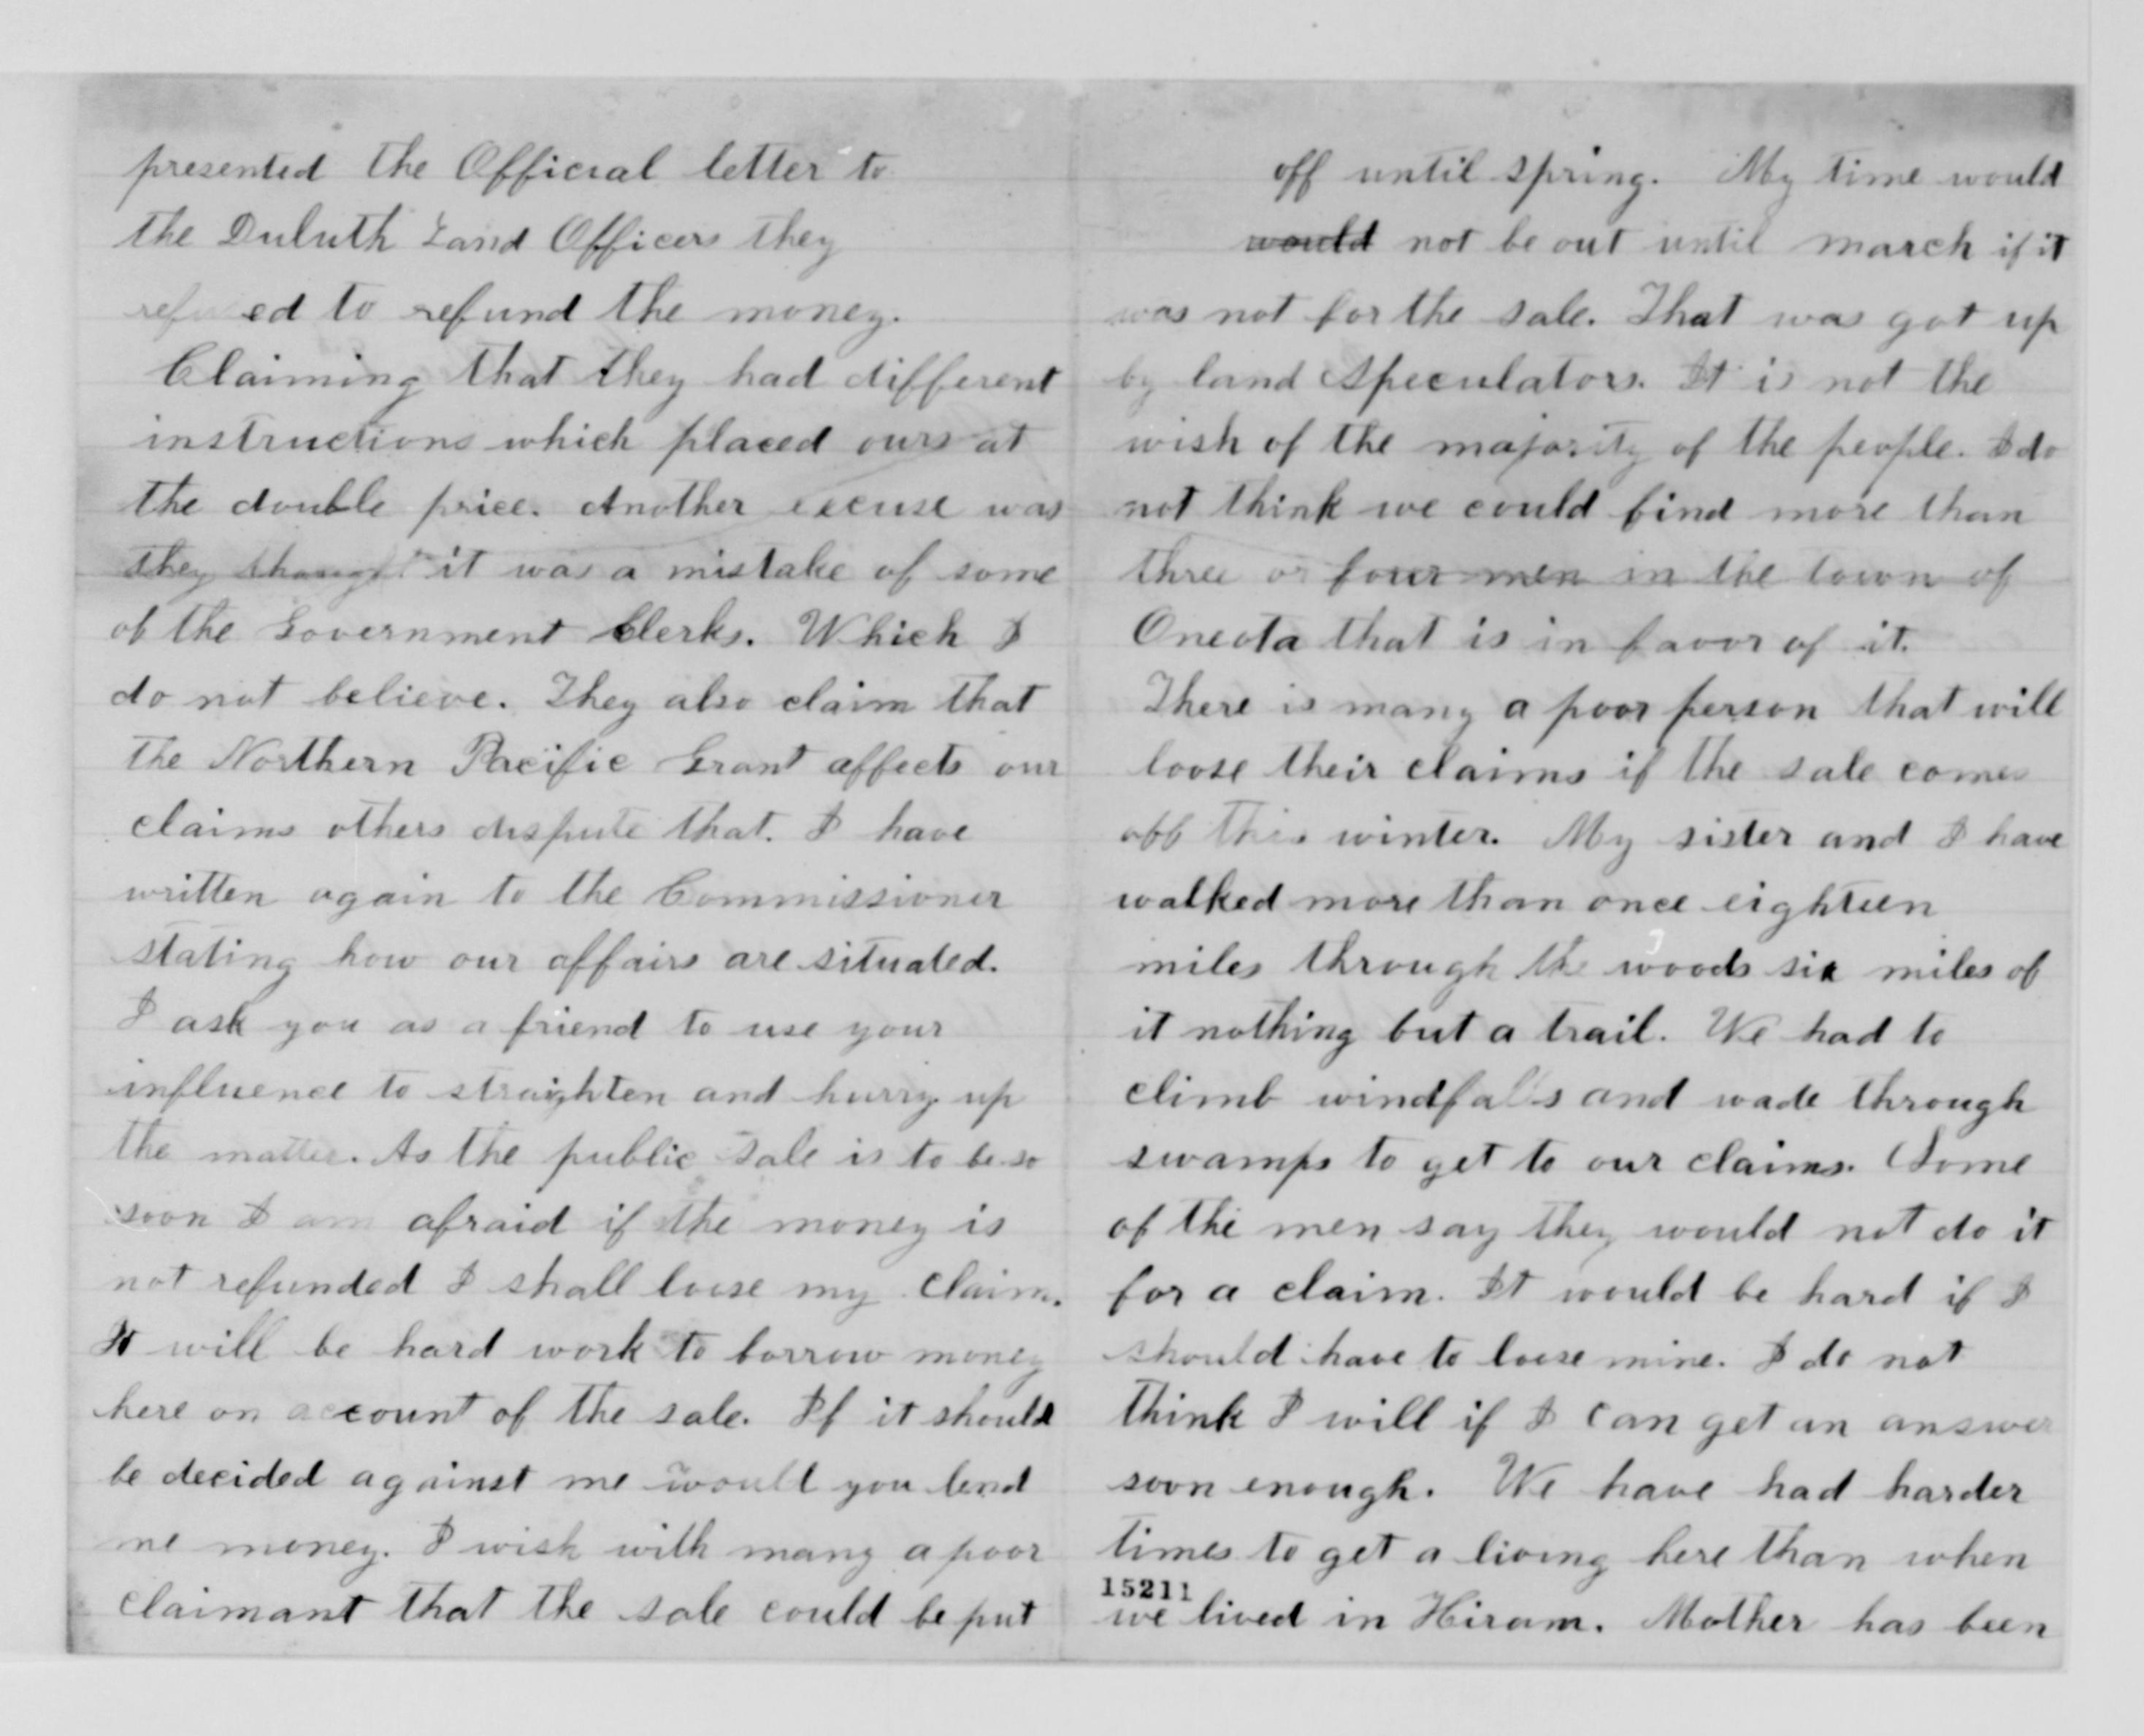 presented the Official letter to
the Duluth Land Officers they
refused to refund the money.
Claiming that they had different
instructions which placed ours at
the double price. Another excuse was
they thought it was a mistake of some
of the Government Clerks. Which I
do not believe. They also claim that
the Northern Pacific Grant affects our
claims others dispute that. I have
written again to the Commissioner
stating how our affairs are situated.
I ask you as a friend to use your
influence to straighten and hurry up
the matter. As the public sale is to be so
soon I am afraid if the money is
not refunded I shall loose my claim.
It will be hard work to borrow money
here on account of the sale. If it should
be decided against me would you lend
me money. I wish with many a poor
claimant that the sale could be put
off until spring. My time would
would not be out until march if it
was not for the sale. That was got up
by land speculators. It is not the
wish of the majority of the people. I do
not think we could find more than
three or four men in the town of
Oneota that is in favor of it.
There is many a poor person that will
loose their claims if the sale comes
off this winter. My sister and I have
walked more than once eighteen
miles through the woods six miles of
it nothing but a trail. We had to
climb windfalls and wade through
swamps to get to our claims. Some
of the men say they would not do it
for a claim. It would be hard if I
should have to loose mine. I do not
think I will if I can get an answer
soon enough. We have had harder
times to get a living here than when
15211
we lived in Hiram. Mother has been